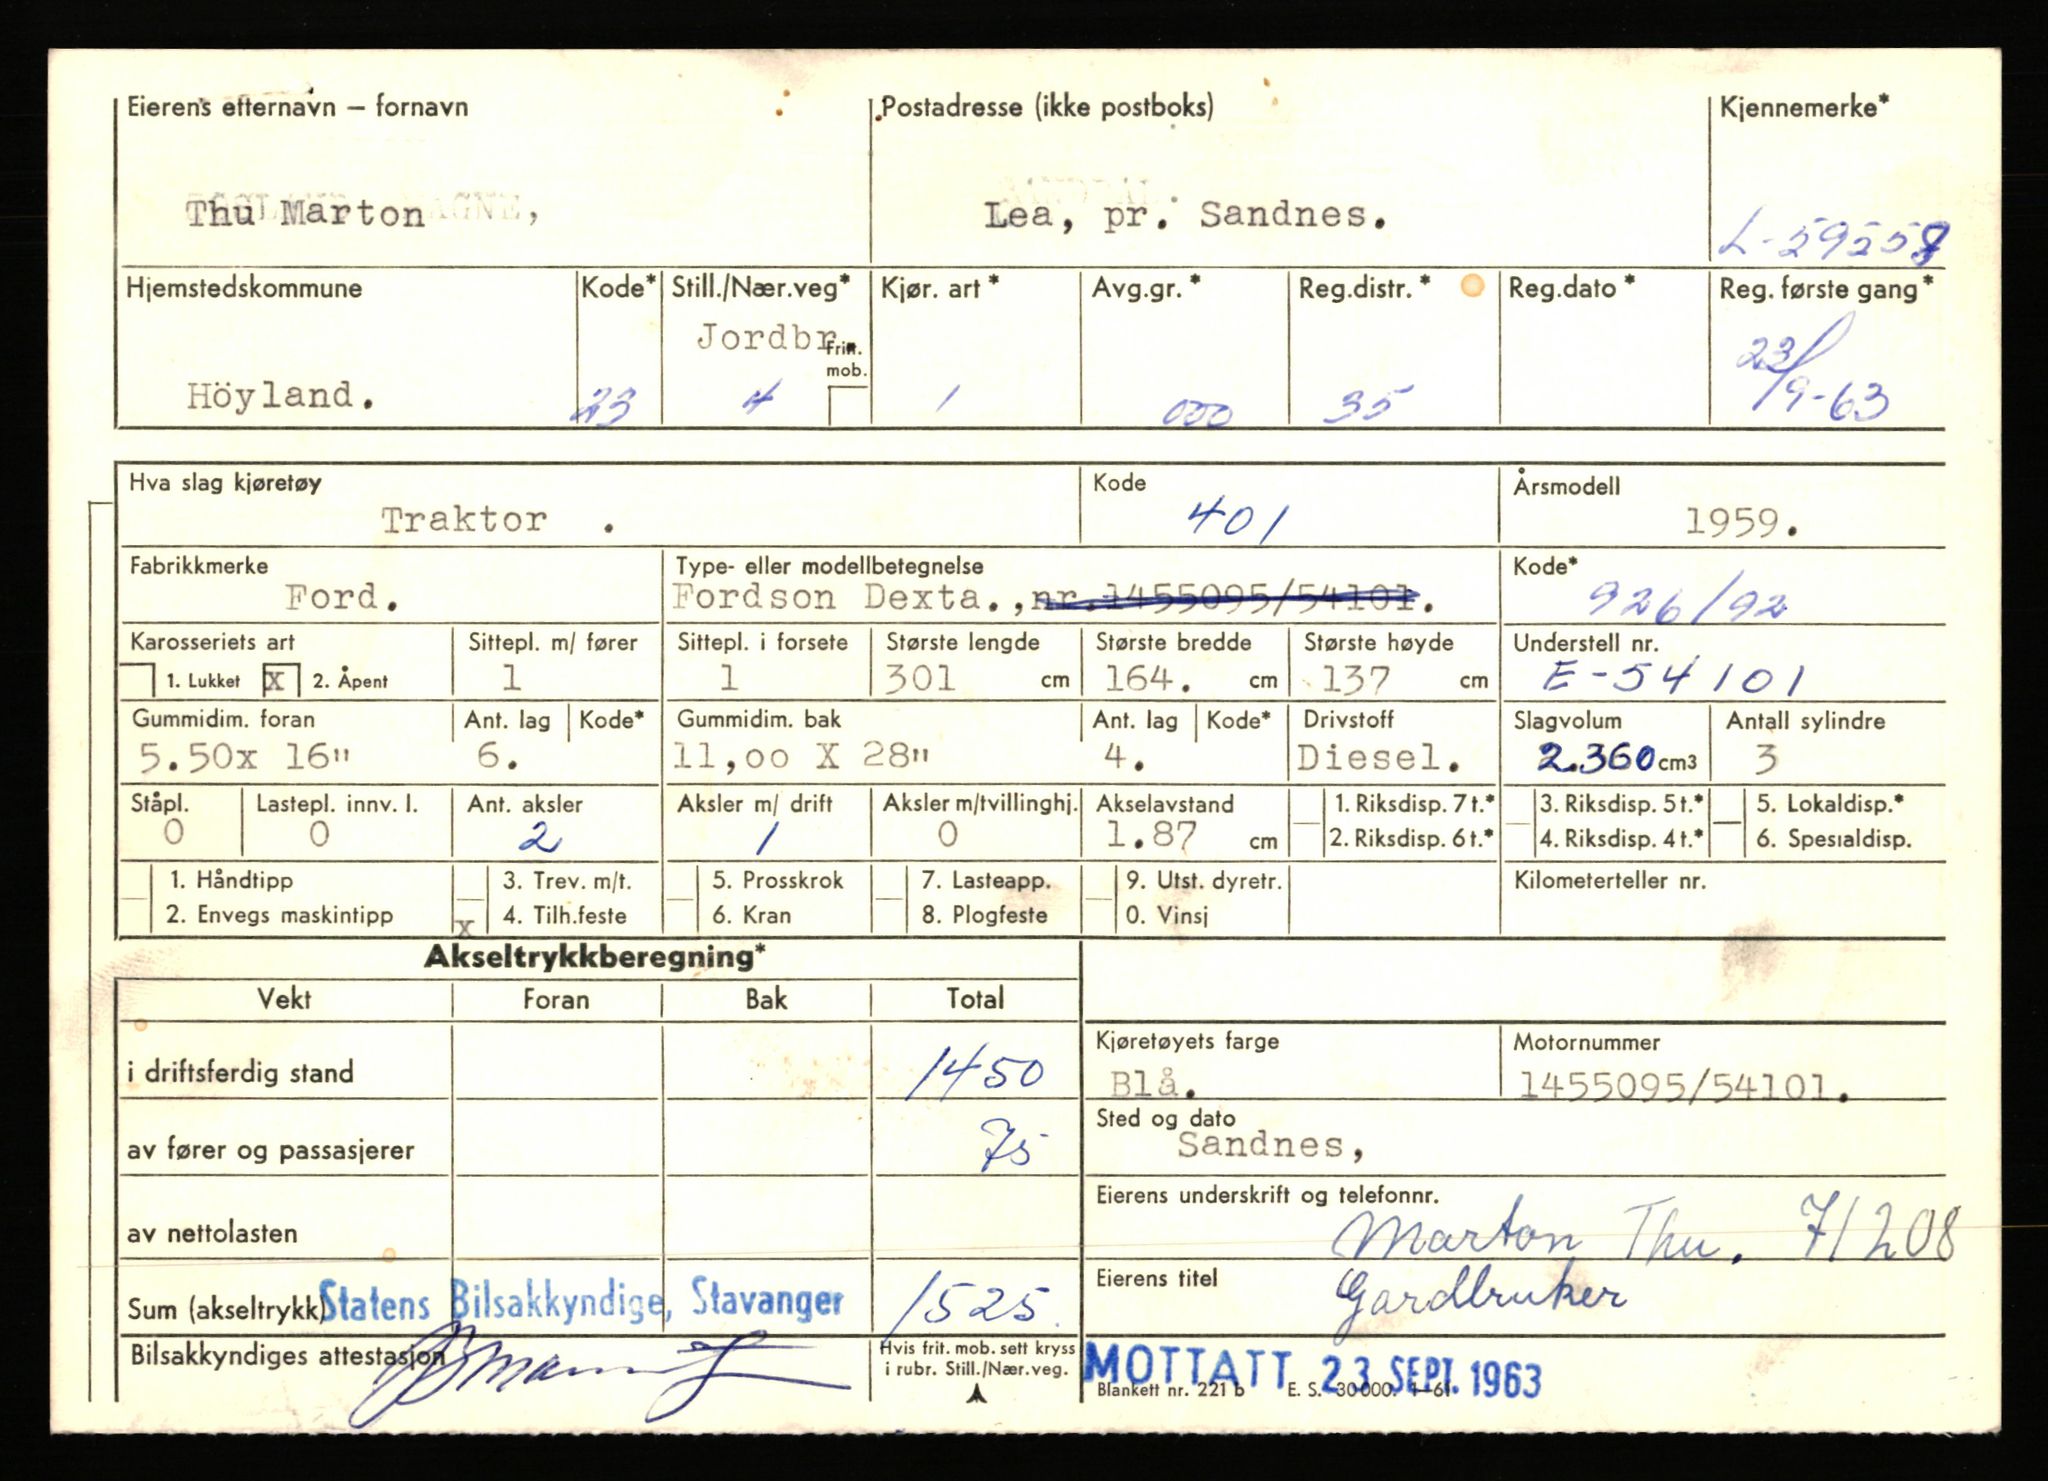 Eierens etternavn – fornavn Postadresse (ikke postboks) Kjennemerke*
Thu Marton Lea, pr. Sandnes. L-59558
Hjemstedskommune Kode* Still./Nær.veg* Kjør. art* Avg.gr.* Reg.distr.* Reg.dato* Reg. første gang*
Jordbr. Frit. mob.
Höyland. 23 4 1 000 35 23/9-63
Hva slag kjøretøy Kode Årsmodell
Traktor . 401 1959.
Fabrikkmerke Type- eller modellbetegnelse Kode*
Ford. Fordson Dexta.,nr.1455095/54101. 926/92
Karosseriets art Sittepl. m/ fører Sittepl. i forsete Største lengde Største bredde Største høyde Understell nr.
1. Lukket x 2. Åpent 1 1 301 cm 164. cm 137 cm E-54101
Gummidim. foran Ant. lag Kode* Gummidim. bak Ant. lag Kode* Drivstoff Slagvolum Antall sylindre
5.50x 16" 6. 11,00 X 28" 4. Diesel. 2.360 cm3 3
Ståpl. Lastepl. innv. l. Ant. aksler Aksler m/ drift Aksler m/tvillinghj. Akselavstand 1. Riksdisp. 7 t.* 3. Riksdisp. 5 t.* 5. Lokaldisp.*
0 0 2 1 0 1.87 cm 2. Riksdisp. 6 t.* 4. Riksdisp. 4 t.* 6. Spesialdisp.
1. Håndtipp 3. Trev. m/t. 5. Prosskrok 7. Lasteapp. 9. Utst. dyretr. Kilometerteller nr.
2. Envegs maskintipp x 4. Tilh.feste 6. Kran 8. Plogfeste 0. Vinsj
Akseltrykkberegning*
Vekt Foran Bak Total
Kjøretøyets farge Motornummer
i driftsferdig stand 1450 Blå. 1455095/54101.
Sted og dato
av fører og passasjerer 75 Sandnes,
Eierens underskrift og telefonnr.
av nettolasten Marton Thu. 71208
Eierens titel
Sum (akseltrykk) Statens Bilsakkyndige, Stavanger 1525. Gardbruker
Bilsakkyndiges attestasjon Hvis frit. mob. sett kryss i rubr. Still./Nær.veg. MOTTATT 23. SEPT. 1963
Blankett nr. 221 b E. S. 30000. 1-61